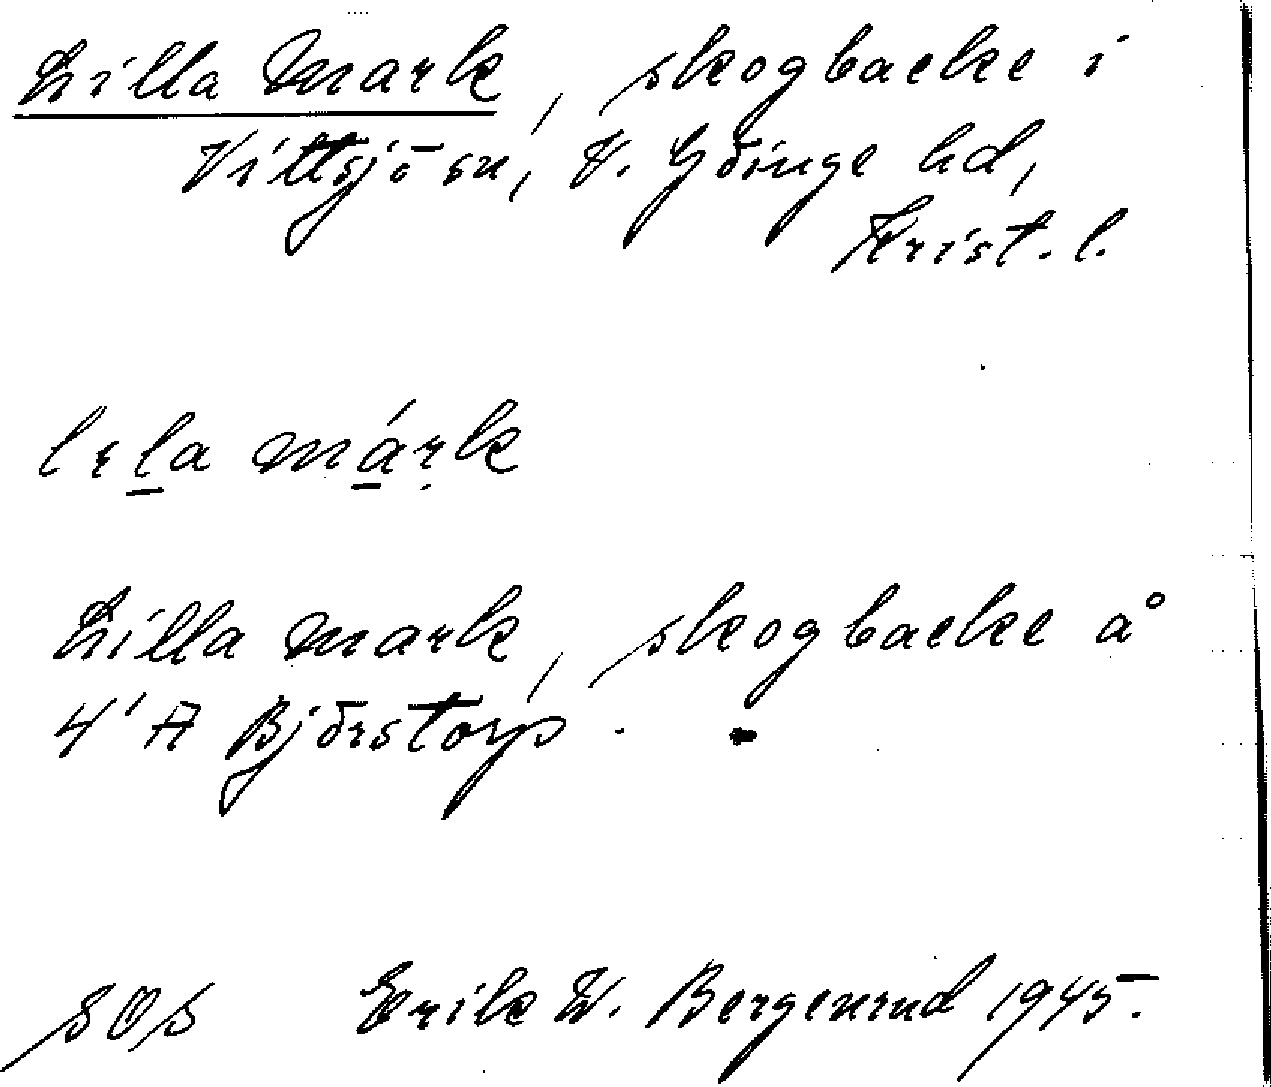 Lilla Mark, skogbacke i
Vittsjö sn, V. Göinge hd,
Krist. l.
lɩla márk
Lilla mark, skogbacke å
4'A Björstorp.
SOS Erik W. Bergenrud 1945.